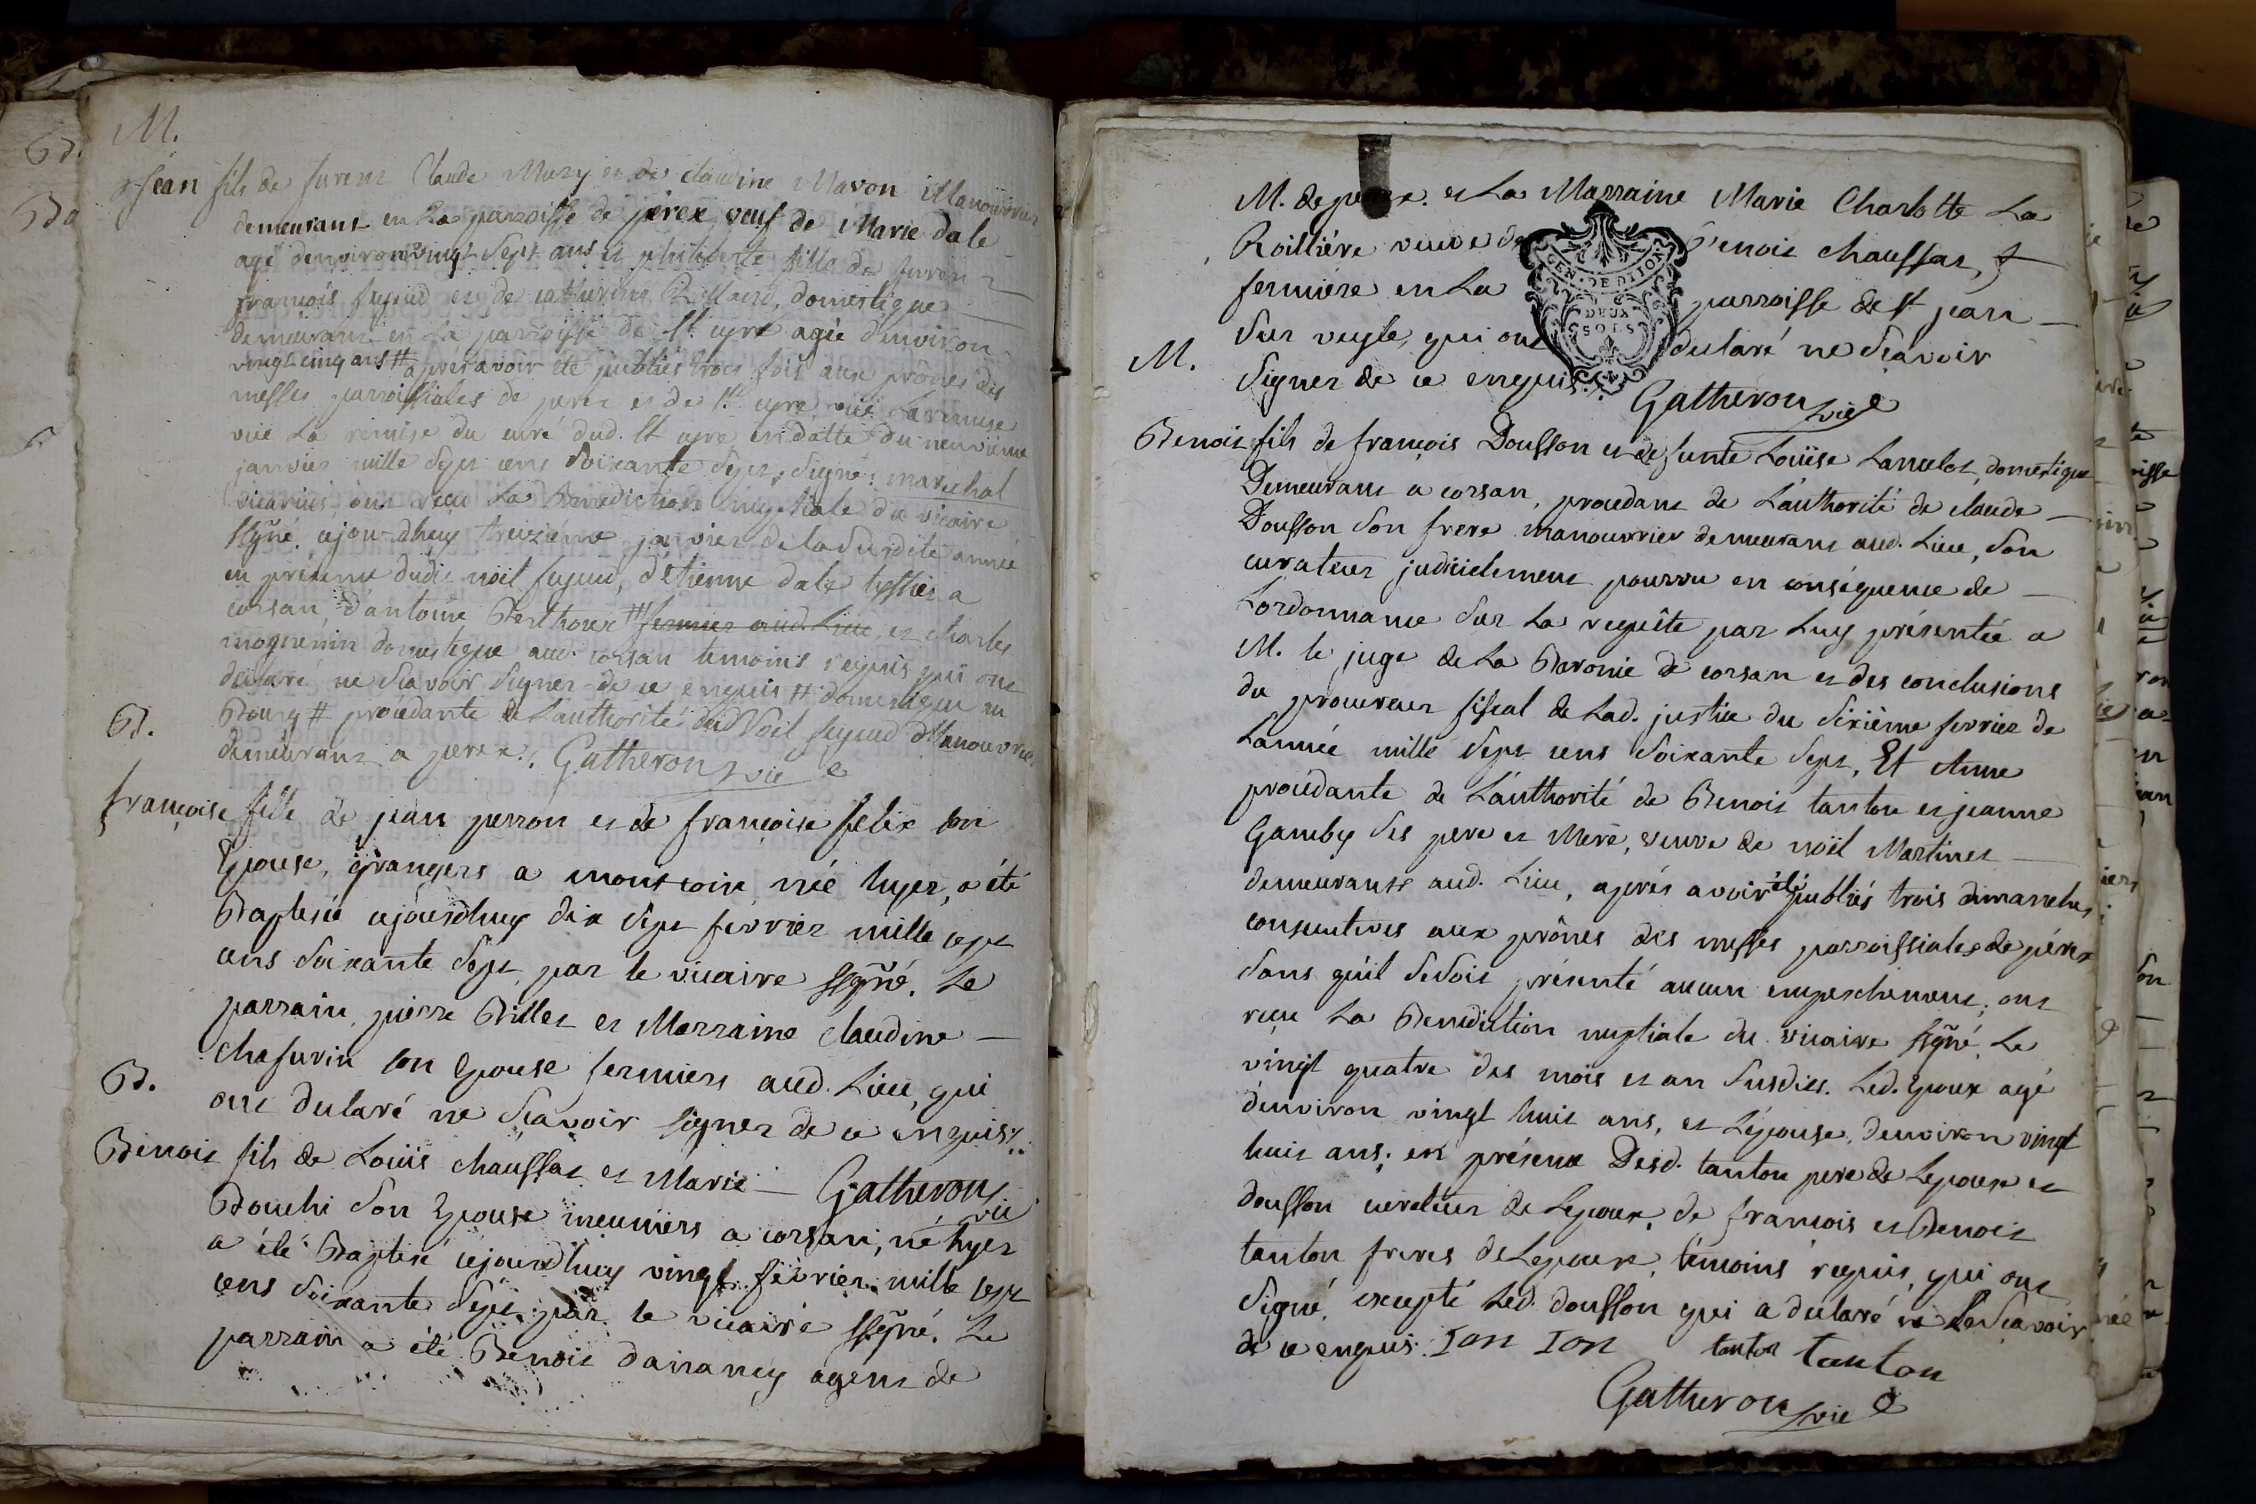 M.
Jean fils de furent Claude Muzy et de claudine Mavon Manouvrier
demeurant en La parroisse de perex veuf de Marie dale
agé denviron vingt Sept ans et philiberte fille de furent
francois fuyoud et de catherine domestique
demeurant en La parroisse de st. cyre agée d'environ
vingt cinq ans # apres avoir été publiés trois fois aux prônes des
messes parroissiales de perex et de st. cyre, vüe La remise
vüe La remise du curé dud. st cyre en datte du neuvieme
janvier mille Sept cens Soixante Sept, Signé: marechal
vicarius, ont reçu La Benediction nuptiale du vicaire
ssgné. cejourdhuy treizième janvier de la Susdite année
en présence dudit noël fuyoud, d'étienne dale tessier a
corsan, d'antoine Berthoux ## fermier aud. Lieu, et charles
moguenin domestique aud. corsan temoins requis qui ont
declaré ne Scavoir Signer de ce enquis ## domestique en
Bourg # procedante de L'authorité dud Noël fuyoud Manouvrier
demeurant a perex. Gatheron vic
B.
françoise fille de jean perron et de françoise felix son
Epouse, grangers a montcoin, née hyer, a été
Baptisée cejourdhuy dix Sept fevrier mille sept
cens Soixante Sept, par le vicaire ssgné. Le
parrain, pierre Billet et Marraine claudine
chafurin son Epouse fermiers aud. Lieu, qui
ont declaré ne Scavoir signer de ce enquis.
Gatheron vic
B.
Benoit fils de Loüis chaussat et Marie
Bouchi Son Epouse meuniers a corsan, né hyer
a été Baptisé cejourdhuy vingt fevrier mille sept
cens Soixante Sept, par le vicaire ssgné. Le
parrain a été Benoit dananey agent de
M. de perex. et La Marraine Marie Charlotte La
Roilliére veuve de Benoit chaussat,
fermiére en La parroisse de st jean
Sur veyle, qui ont declaré ne Scavoir
Signer de ce enquis. Gatheron vic
GEN. DE DIJON
DEUX
SOLS
M.
Benoit fils de françois Dousson et de funte Loüise Lancelot, domestique
Demeurant a corsan, procedant de L'authorité de claude
Dousson Son frere manouvrier demeurant aud. Lieu, Son
curateur judicielement pourvu en conséquence de
Lordonnance Sur La requête par Luy présentée a
M. le juge de La Baronie de corsan et des conclusions
du procureur fiscal de Lad. justice du Sixième fevrier de
Lannée mille Sept cens Soixante Sept, Et Anne
procédante de L'authorité de Benoit tanton et jeanne
Gamby Ses pere et Mere, veuve de noël Martinet
demeurants aud. Lieu, aprés avoir été publiés trois dimanches
consecutives aux prônes des messes parroissiales de pérex
Sans qu'il Se Soit présenté aucun empeschement, ont
reçu La Benediction nuptiale du vicaire ssgné. Le
vingt quatre des mois et an Susdits. Led. Epoux agé
d'environ vingt huit ans, et L'épouse, d'environ vingt
huit ans; en présence Desd. tanton pere de Lepouse et
dousson curateur de Lepoux, de francois et Benoit
tanton freres de Lepouse, témoins requis, qui ont
Signé, excepté Led. dousson qui a declaré ne Le Scavoir
de ce enquis. Ton Ton tanton tanton
Gatheron vic